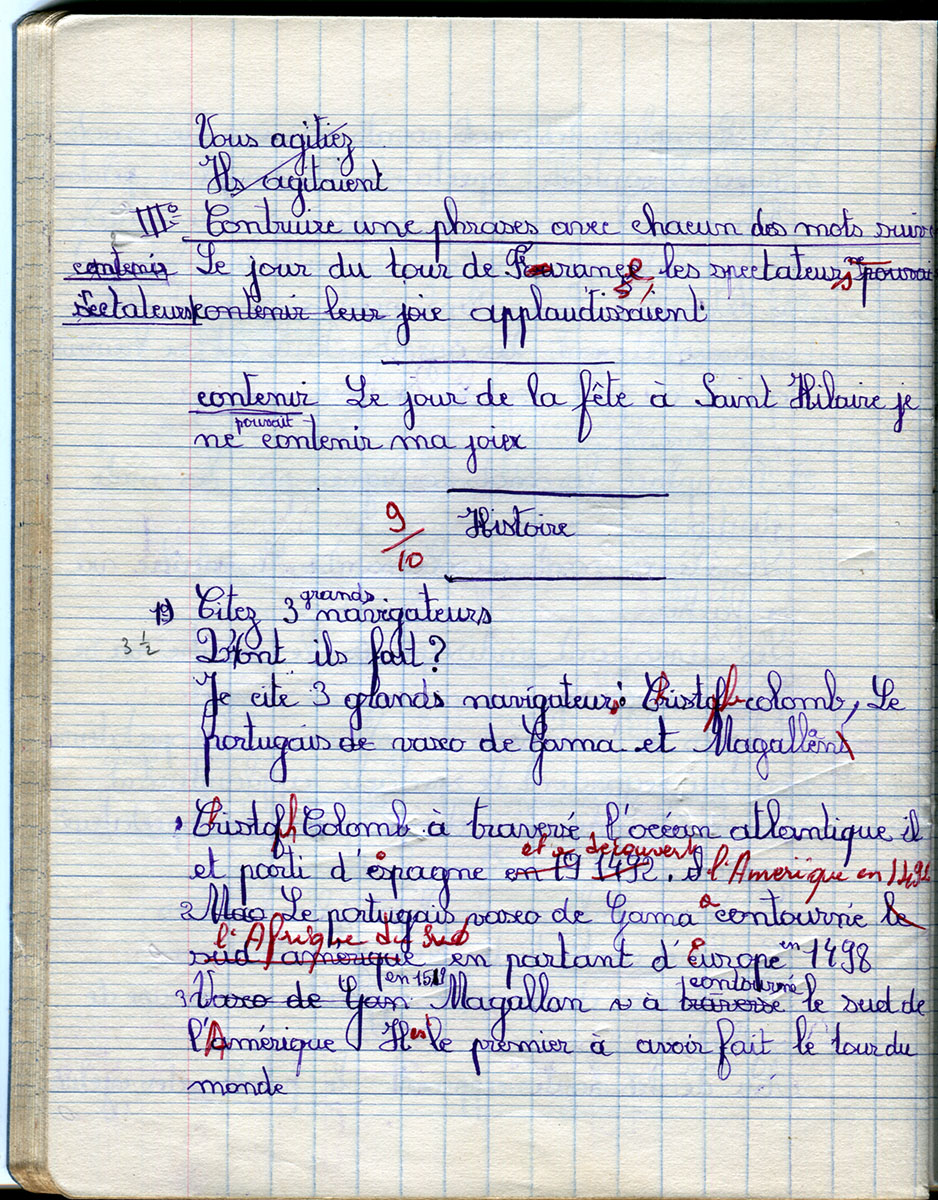 Vous agitiez
Ils agitaient
III° Construire une phrases avec chacun des mots suiv
contenir Le jour du tour de France les spectateurs ne pouvai
spectateurs contenir leur joie applaudissaient
contenir Le jour de la fête à Saint Hilaire je
pouvait
ne contenir ma joie
9/10 Histoire
grands
1°) Citez 3 navigateurs
3 ½ Qu'ont ils fait?
Je cite 3 glands navigateurs: Christophe colomb, Le
portugais de vasco de Gama et Magallens
1 Christophe Colomb à traversé l'océan atlantique il
et a découvert
et parti d'espagne en 19 1492. Il l'Amerique en 1492
2 Le portugais vasco de Gama a contourné le
l'Afrique du Sud
sud amérique en partant d'Europe en 1498
en 1519 contourné
3 Vasco de Gam Magallan à traversé le sud de
l'Amérique Il est le premier à avoir fait le tour du
monde